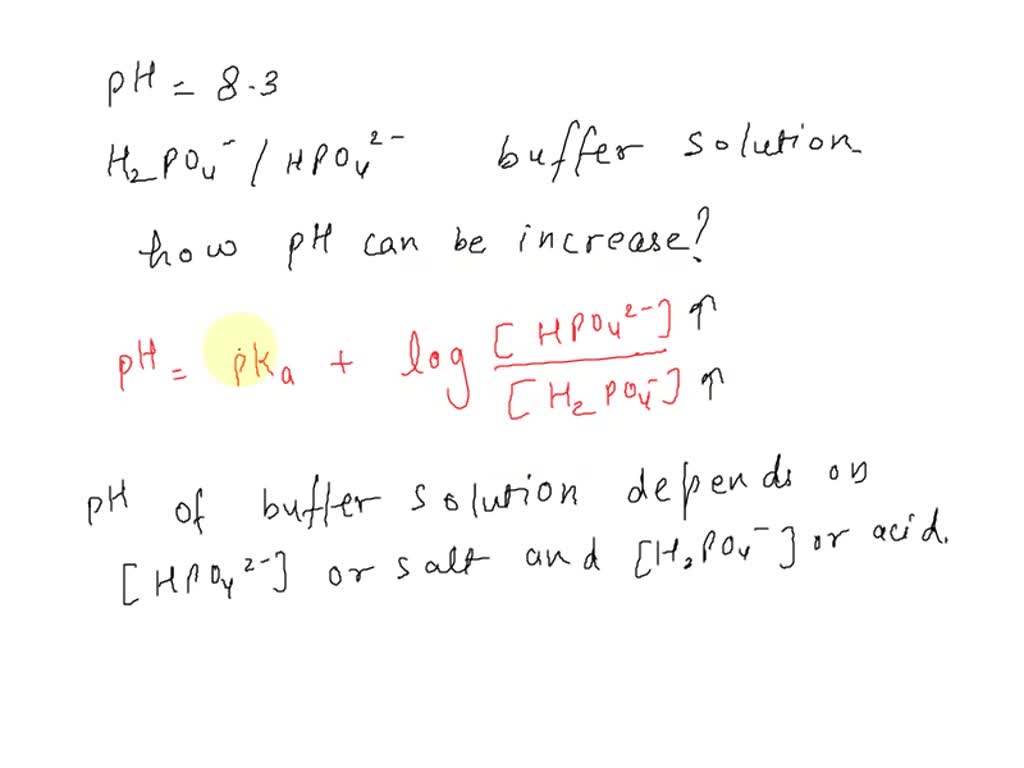 pH = 8.3
H₂PO₄⁻ / HPO₄²⁻ buffer solution
how pH can be increase?
pH = pKa + log [HPO₄²⁻]↑ / [H₂PO₄⁻]↑
pH of buffer solution depends on
[HPO₄²⁻] or salt and [H₂PO₄⁻] or acid.